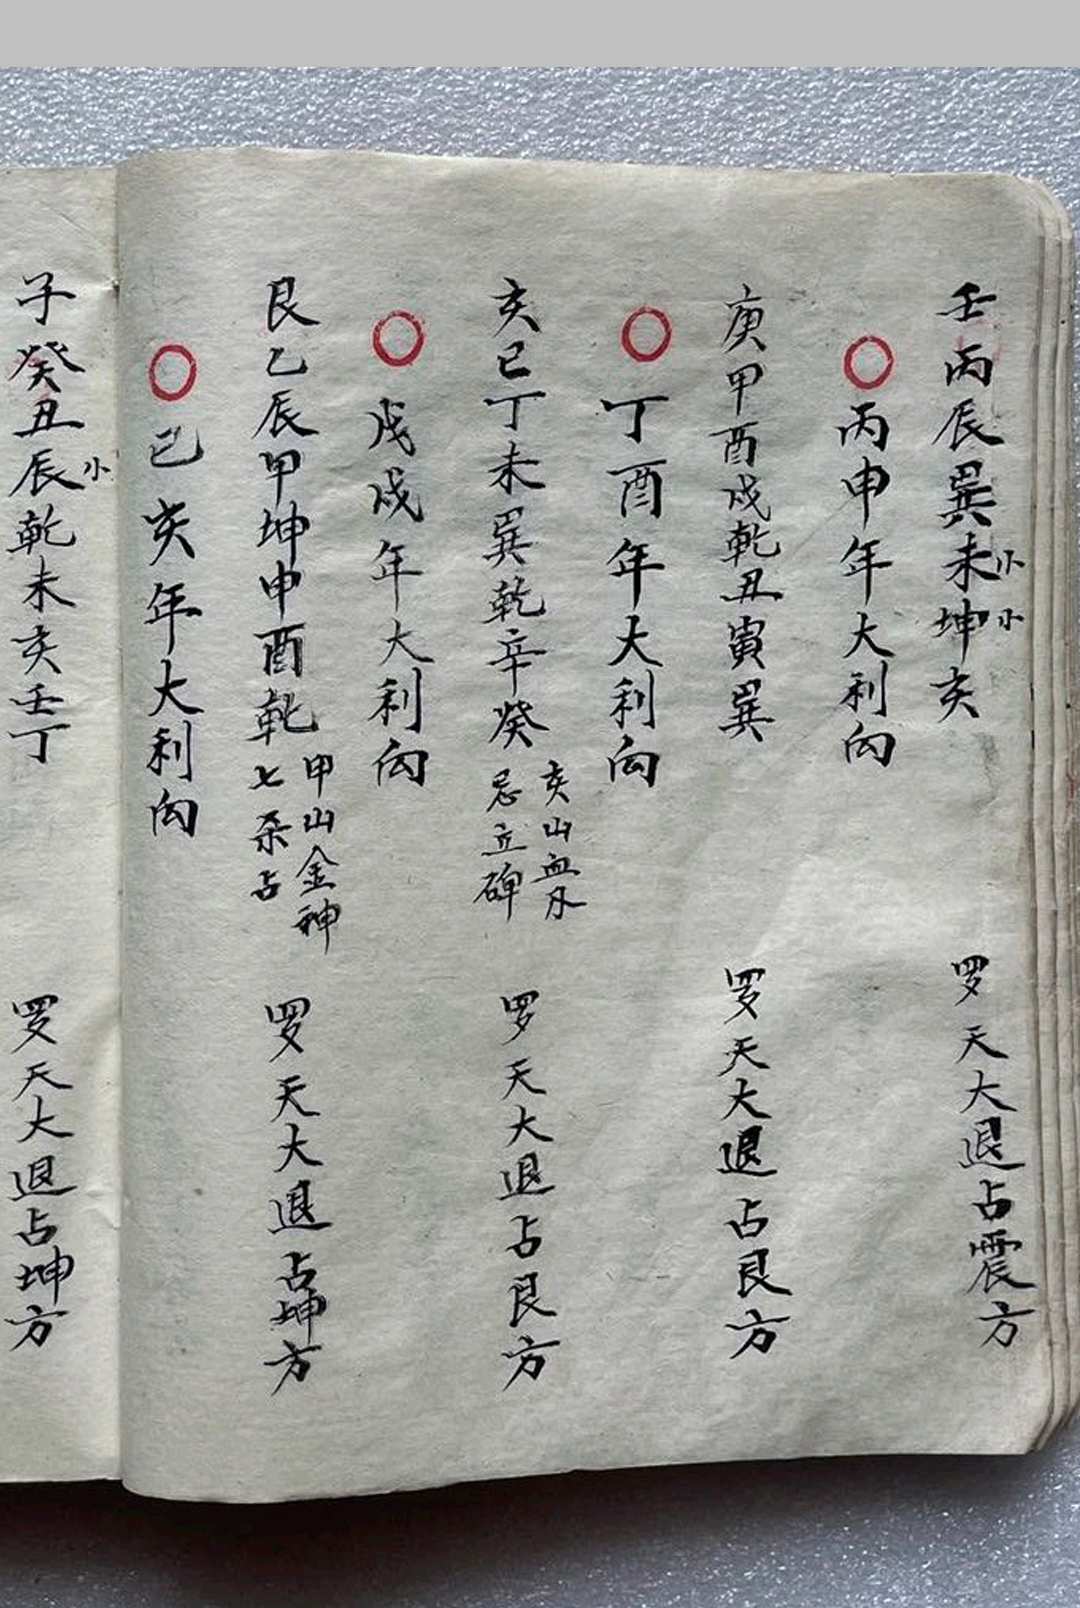 壬丙辰巽未小坤小亥 罗天大退占震方
丙申年大利向
庚甲酉戌乾丑寅巽 罗天大退占艮方
丁酉年大利向
亥巳丁未巽乾辛癸 亥山血刃忌立碑 罗天大退占艮方
戊戌年大利向
艮乙辰甲坤申酉乾 甲山金神七杀占 罗天大退占坤方
己亥年大利向
子癸丑辰小乾未亥壬丁 罗天大退占坤方